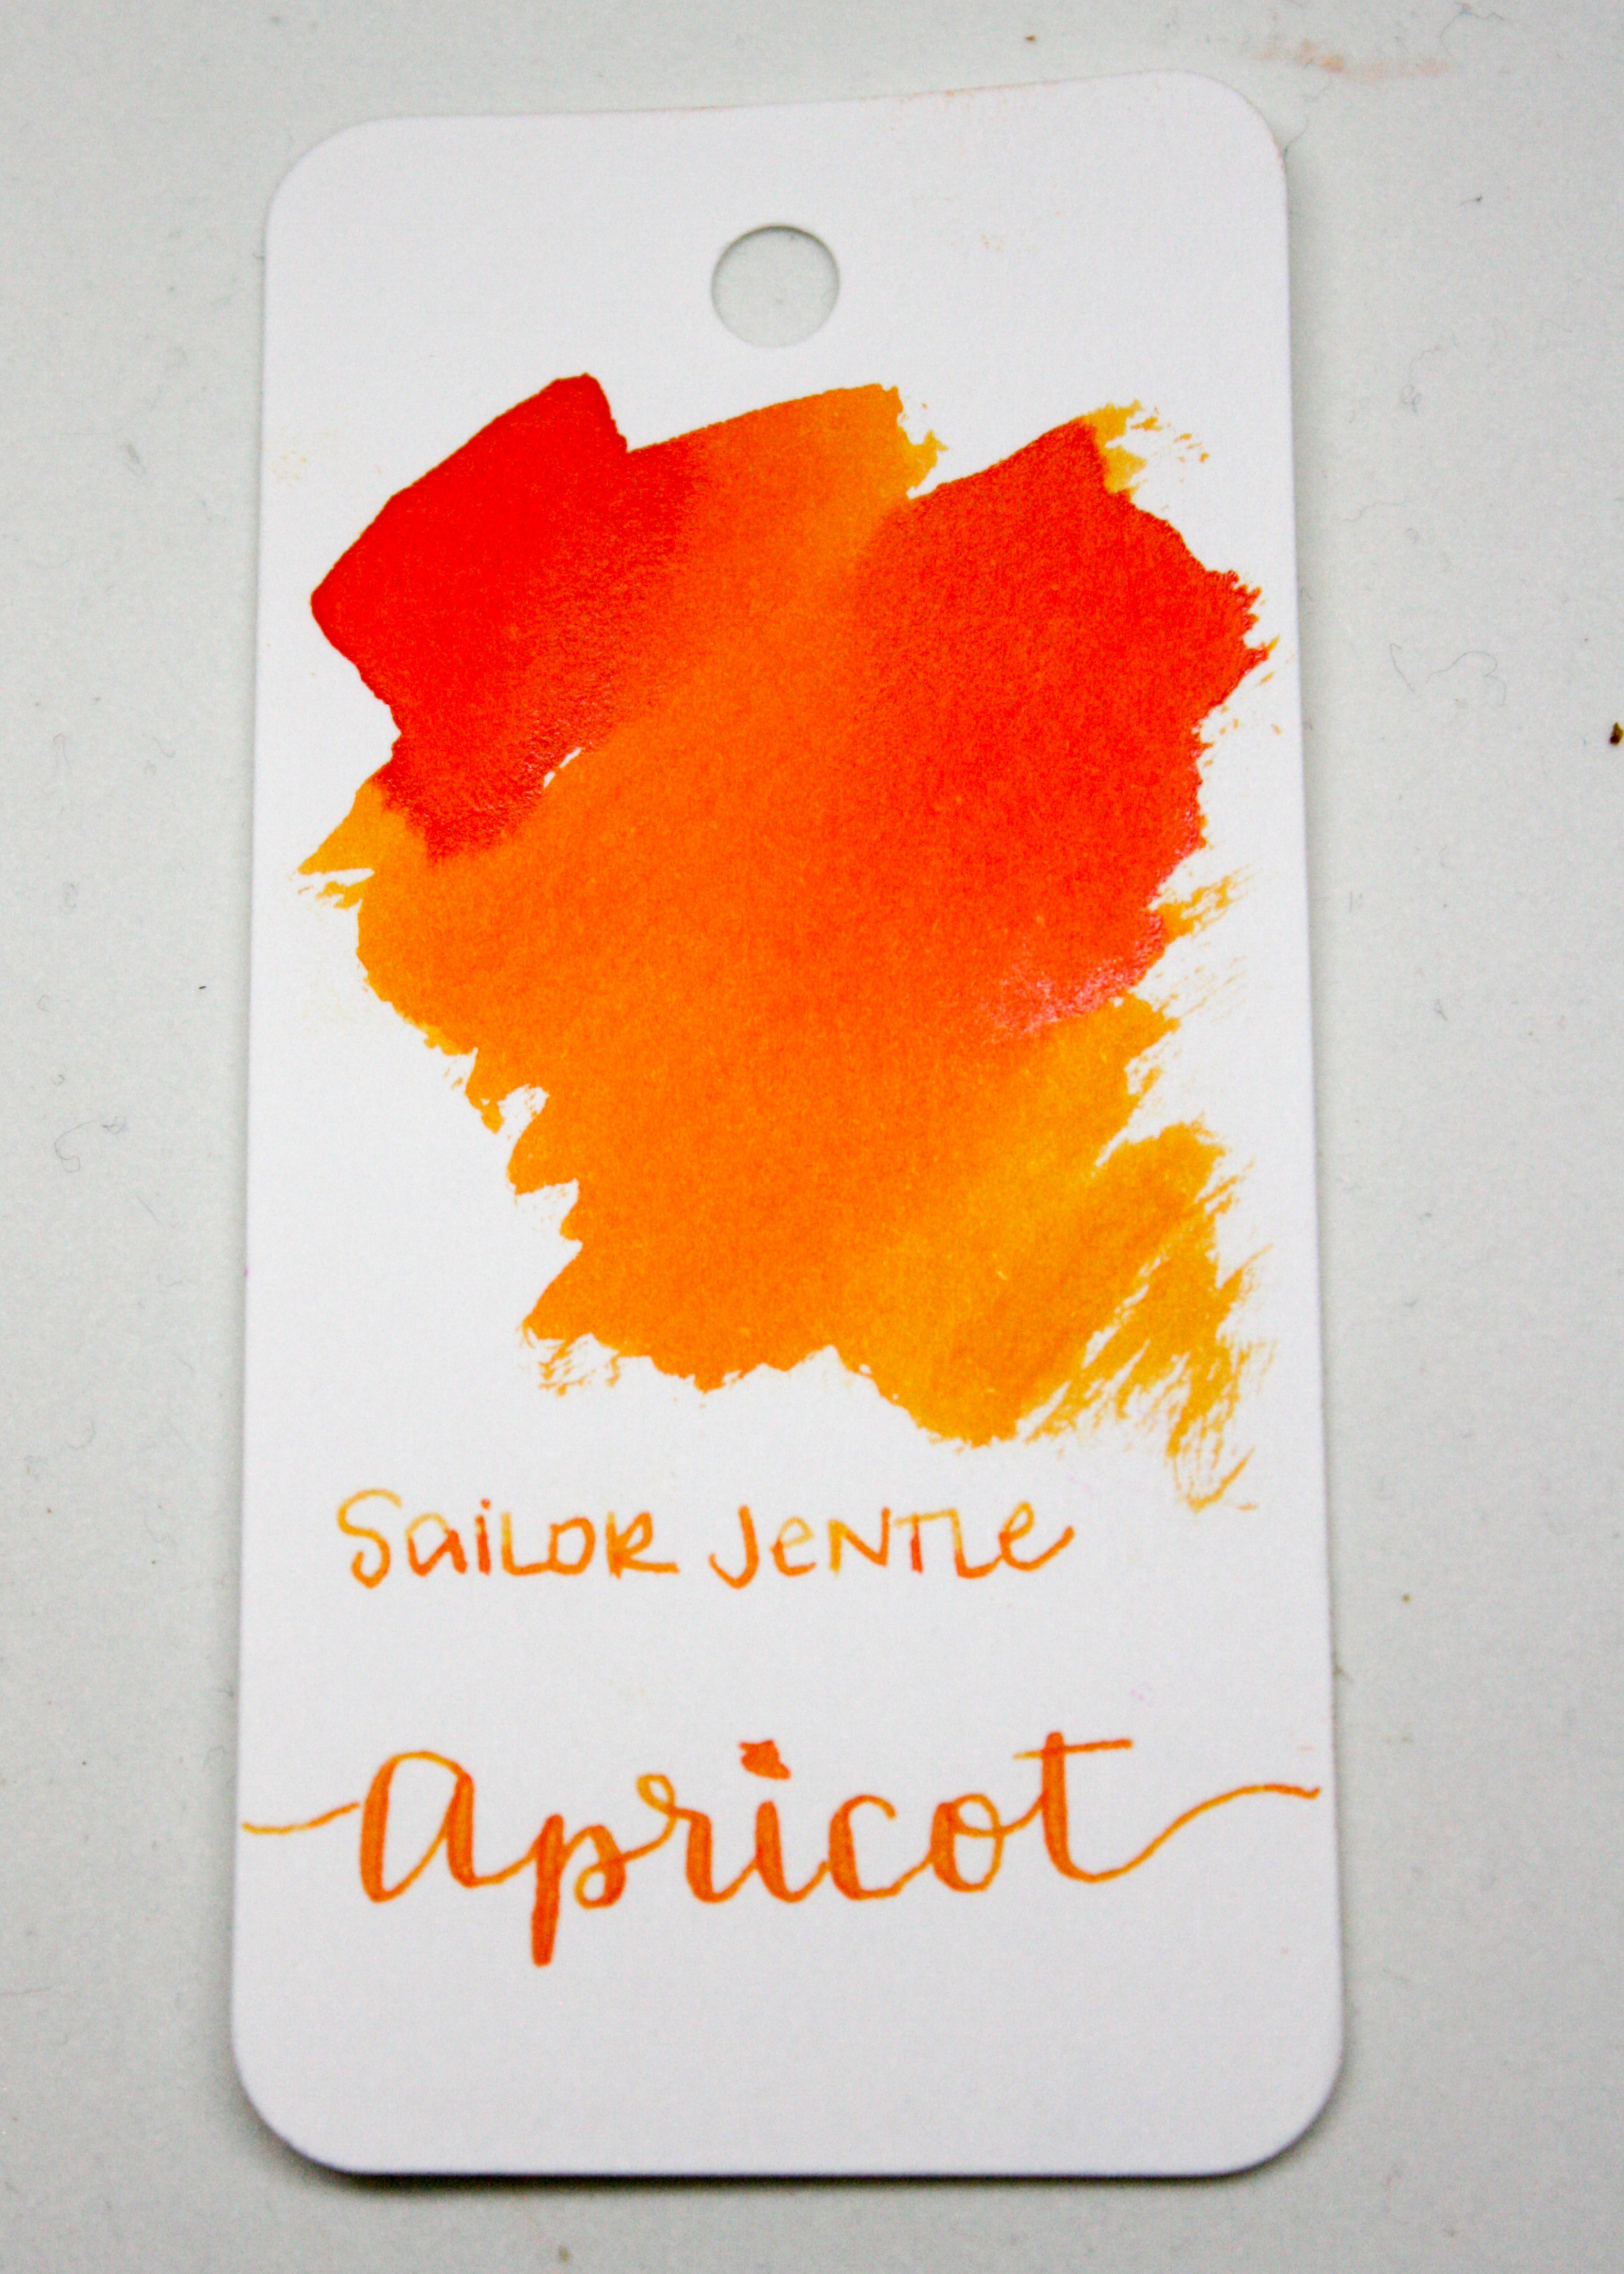 Sailor Jentle
Apricot